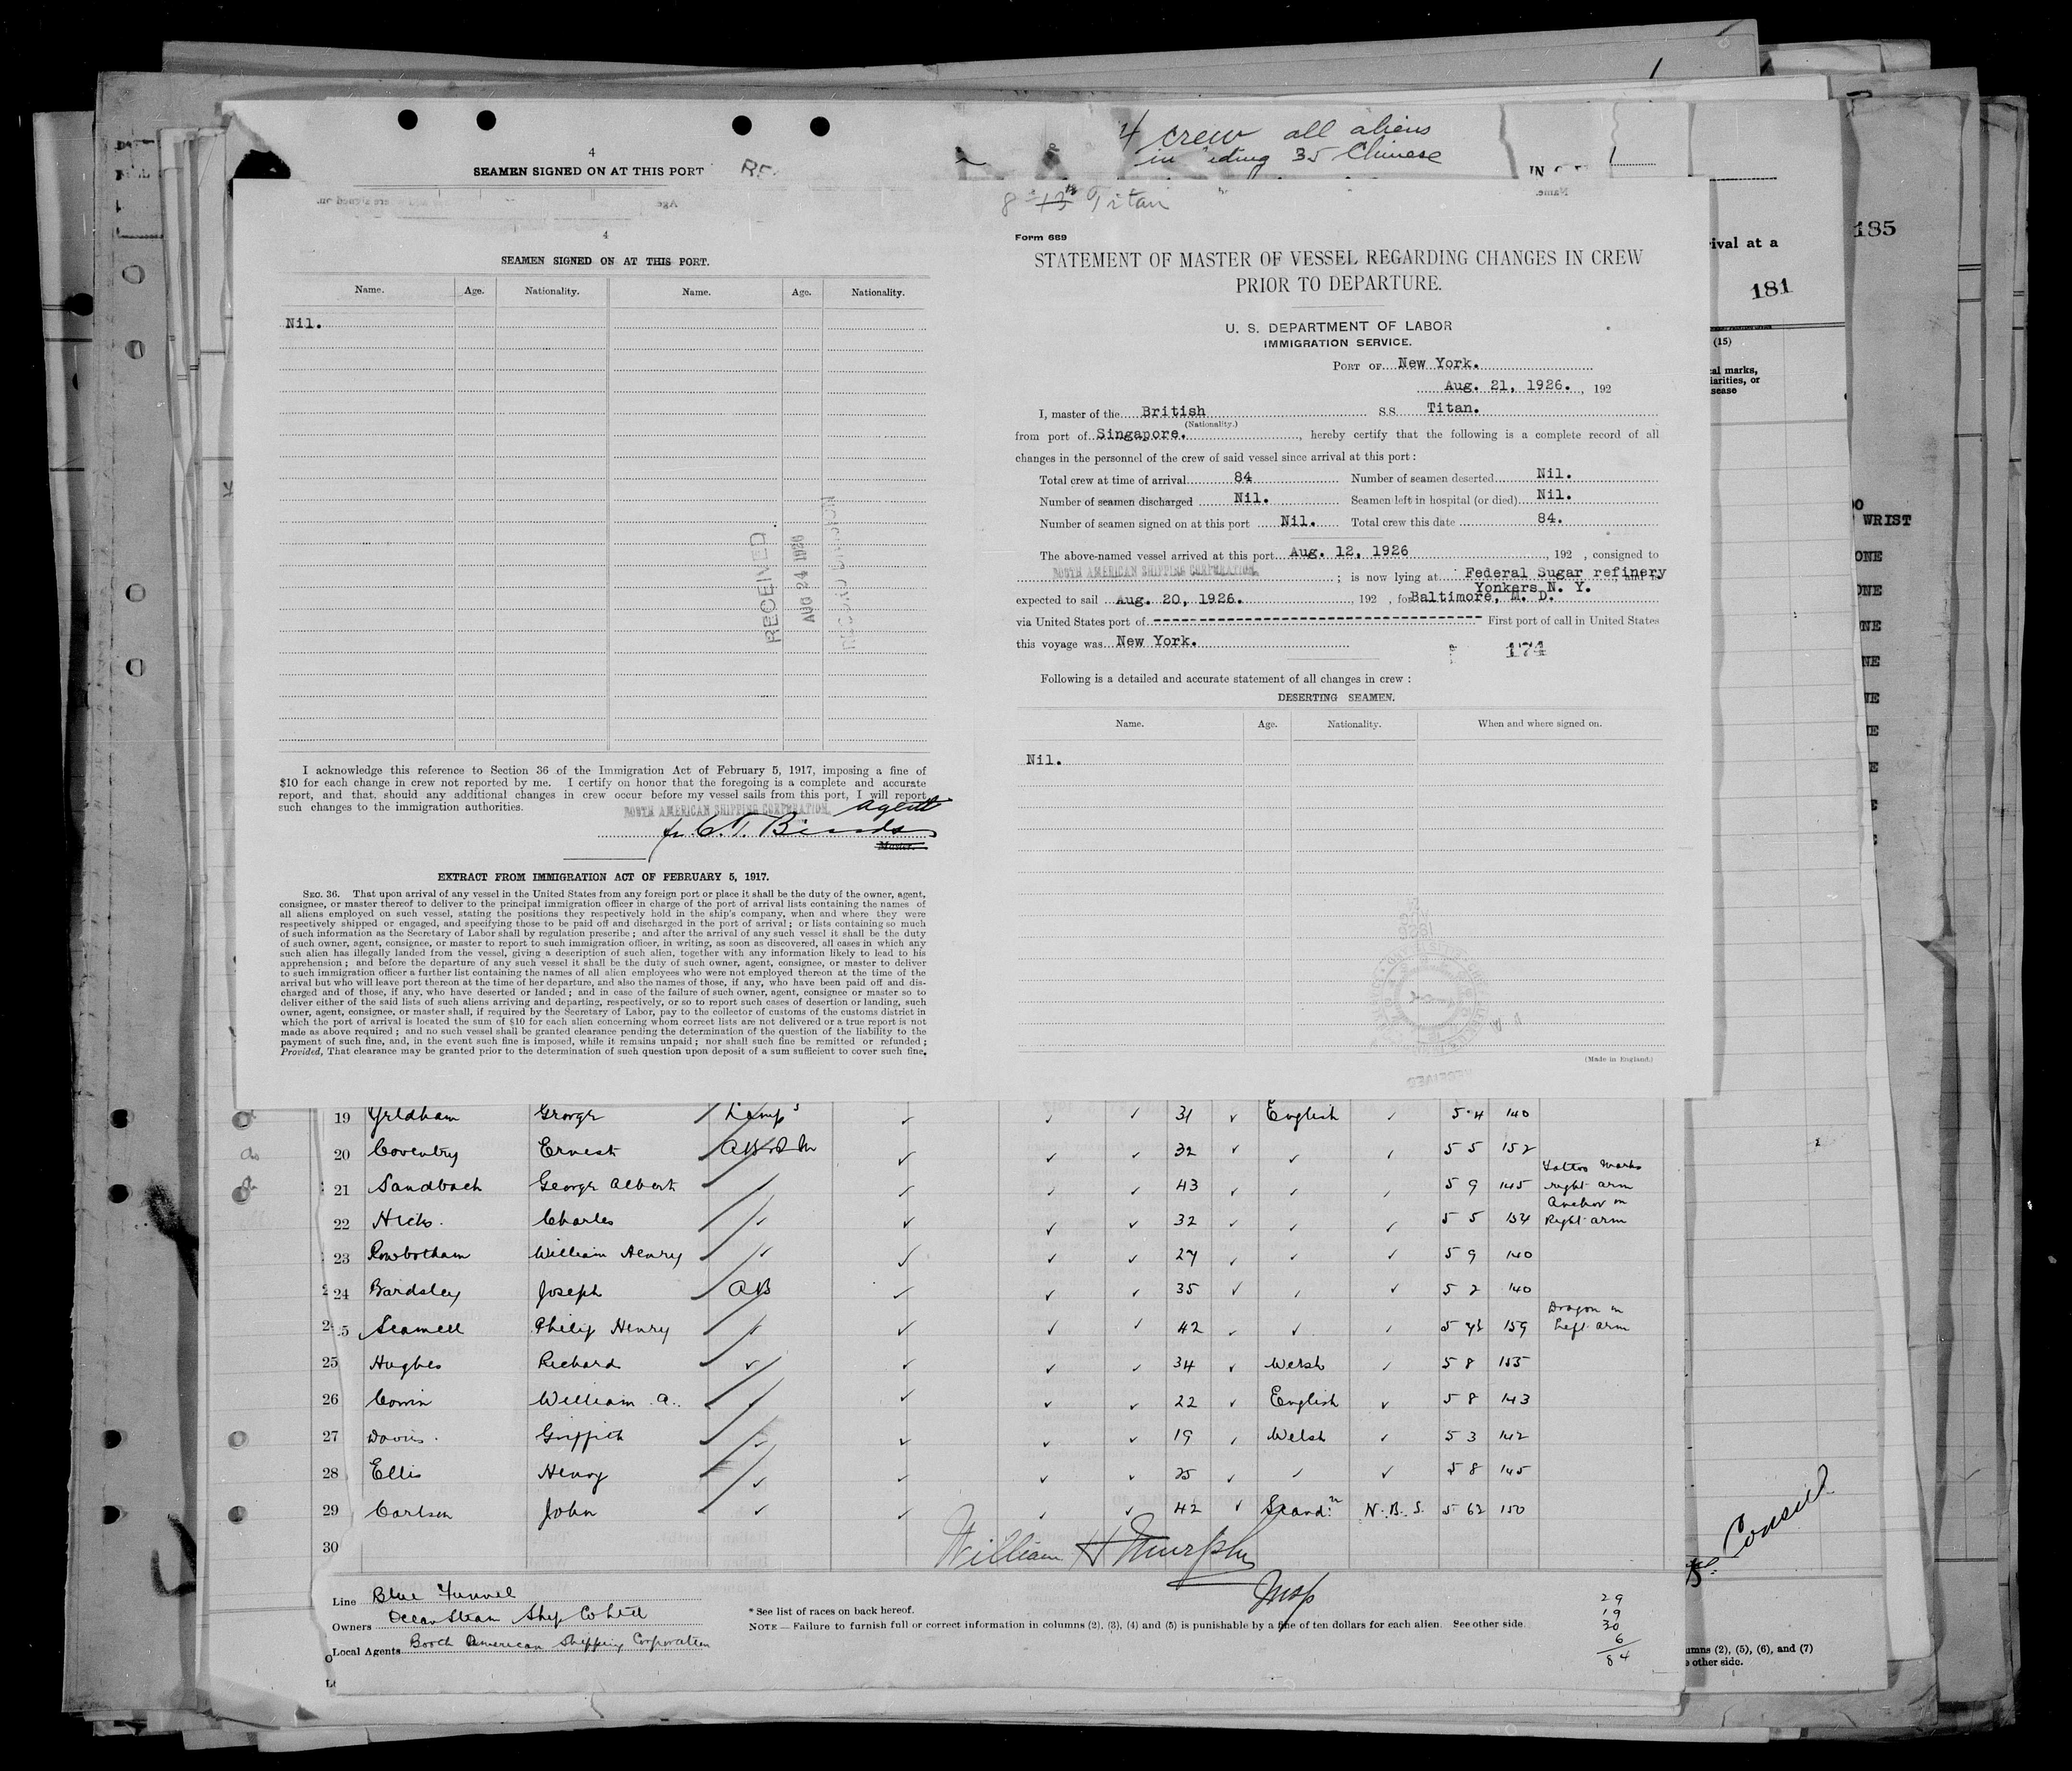 4 crew all aliens
35 Chinese
4
SEAMEN SIGNED ON AT THIS PORT
Titan
4
SEAMEN SIGNED ON AT THIS PORT.
Name. Age. Nationality. Name. Age. Nationality.
Nil.
RECEIVED
AUG 24 1926
I acknowledge this reference to Section 36 of the Immigration Act of February 5, 1917, imposing a fine of
$10 for each change in crew not reported by me. I certify on honor that the foregoing is a complete and accurate
report, and that, should any additional changes in crew occur before my vessel sails from this port, I will report
such changes to the immigration authorities.
AMERICAN SHIPPING CORPORATION
agent
Master.
EXTRACT FROM IMMIGRATION ACT OF FEBRUARY 5, 1917.
SEC. 36. That upon arrival of any vessel in the United States from any foreign port or place it shall be the duty of the owner, agent,
consignee, or master thereof to deliver to the principal immigration officer in charge of the port of arrival lists containing the names of
all aliens employed on such vessel, stating the positions they respectively hold in the ship's company, when and where they were
respectively shipped or engaged, and specifying those to be paid off and discharged in the port of arrival; or lists containing so much
of such information as the Secretary of Labor shall by regulation prescribe; and after the arrival of any such vessel it shall be the duty
of such owner, agent, consignee, or master to report to such immigration officer, in writing, as soon as discovered, all cases in which any
such alien has illegally landed from the vessel, giving a description of such alien, together with any information likely to lead to his
apprehension; and before the departure of any such vessel it shall be the duty of such owner, agent, consignee, or master to deliver
to such immigration officer a further list containing the names of all alien employees who were not employed thereon at the time of the
arrival but who will leave port thereon at the time of her departure, and also the names of those, if any, who have been paid off and dis-
charged and of those, if any, who have deserted or landed; and in case of the failure of such owner, agent, consignee or master so to
deliver either of the said lists of such aliens arriving and departing, respectively, or so to report such cases of desertion or landing, such
owner, agent, consignee, or master shall, if required by the Secretary of Labor, pay to the collector of customs of the customs district in
which the port of arrival is located the sum of $10 for each alien concerning whom correct lists are not delivered or a true report is not
made as above required; and no such vessel shall be granted clearance pending the determination of the question of the liability to the
payment of such fine, and, in the event such fine is imposed, while it remains unpaid; nor shall such fine be remitted or refunded;
Provided, That clearance may be granted prior to the determination of such question upon deposit of a sum sufficient to cover such fine.
Form 689
STATEMENT OF MASTER OF VESSEL REGARDING CHANGES IN CREW
PRIOR TO DEPARTURE.
U. S. DEPARTMENT OF LABOR
IMMIGRATION SERVICE.
PORT OF New York.
Aug. 21, 1926. , 192
I, master of the British S.S. Titan.
(Nationality.)
from port of Singapore. , hereby certify that the following is a complete record of all
changes in the personnel of the crew of said vessel since arrival at this port:
Total crew at time of arrival 84 Number of seamen deserted Nil.
Number of seamen discharged Nil. Seamen left in hospital (or died) Nil.
Number of seamen signed on at this port Nil. Total crew this date 84.
The above-named vessel arrived at this port Aug. 12, 1926 , 192 , consigned to
AMERICAN SHIPPING CORPORATION ; is now lying at Federal Sugar refinery
Yonkers N. Y.
expected to sail Aug. 20, 1926. , 192 , for Baltimore, M. D.
via United States port of First port of call in United States
this voyage was New York.
174
Following is a detailed and accurate statement of all changes in crew:
DESERTING SEAMEN.
Name. Age. Nationality. When and where signed on.
Nil.
(Made in England.)
rival at a
181
(15)
marks,
iarities, or
185
WRIST
19 Yeldham George Lamps 31 English 5 4 140
20 Coventry Ernest 32 5 5 152
21 Sandbach George Albert 43 5 9 145 Tattoo marks right arm
22 Hicks. Charles 32 5 5 154 Anchor on Right arm
23 Rowbotham William Henry 27 5 9 140
24 Bardsley Joseph AB 35 5 2 140
Philip Henry 42 159 Dragon on Left arm
25 Hughes Richard 34 Welsh 5 8 155
26 William A. 22 English 5 8 143
27 Davies. Griffith 19 Welsh 5 3 142
28 Ellis Henry 25 5 8 145
29 Carlsen John 42 Scand. N. B. S. 150
30
William H Murphy
Insp
Line Blue Funnel
Owners Ocean Steam Ship Co Ltd
Local Agents Booth American Shipping Corporation
* See list of races on back hereof.
NOTE — Failure to furnish full or correct information in columns (2), (3), (4) and (5) is punishable by a fine of ten dollars for each alien. See other side.
29
19
30
6
84
Consul
(2), (5), (6), and (7)
other side.